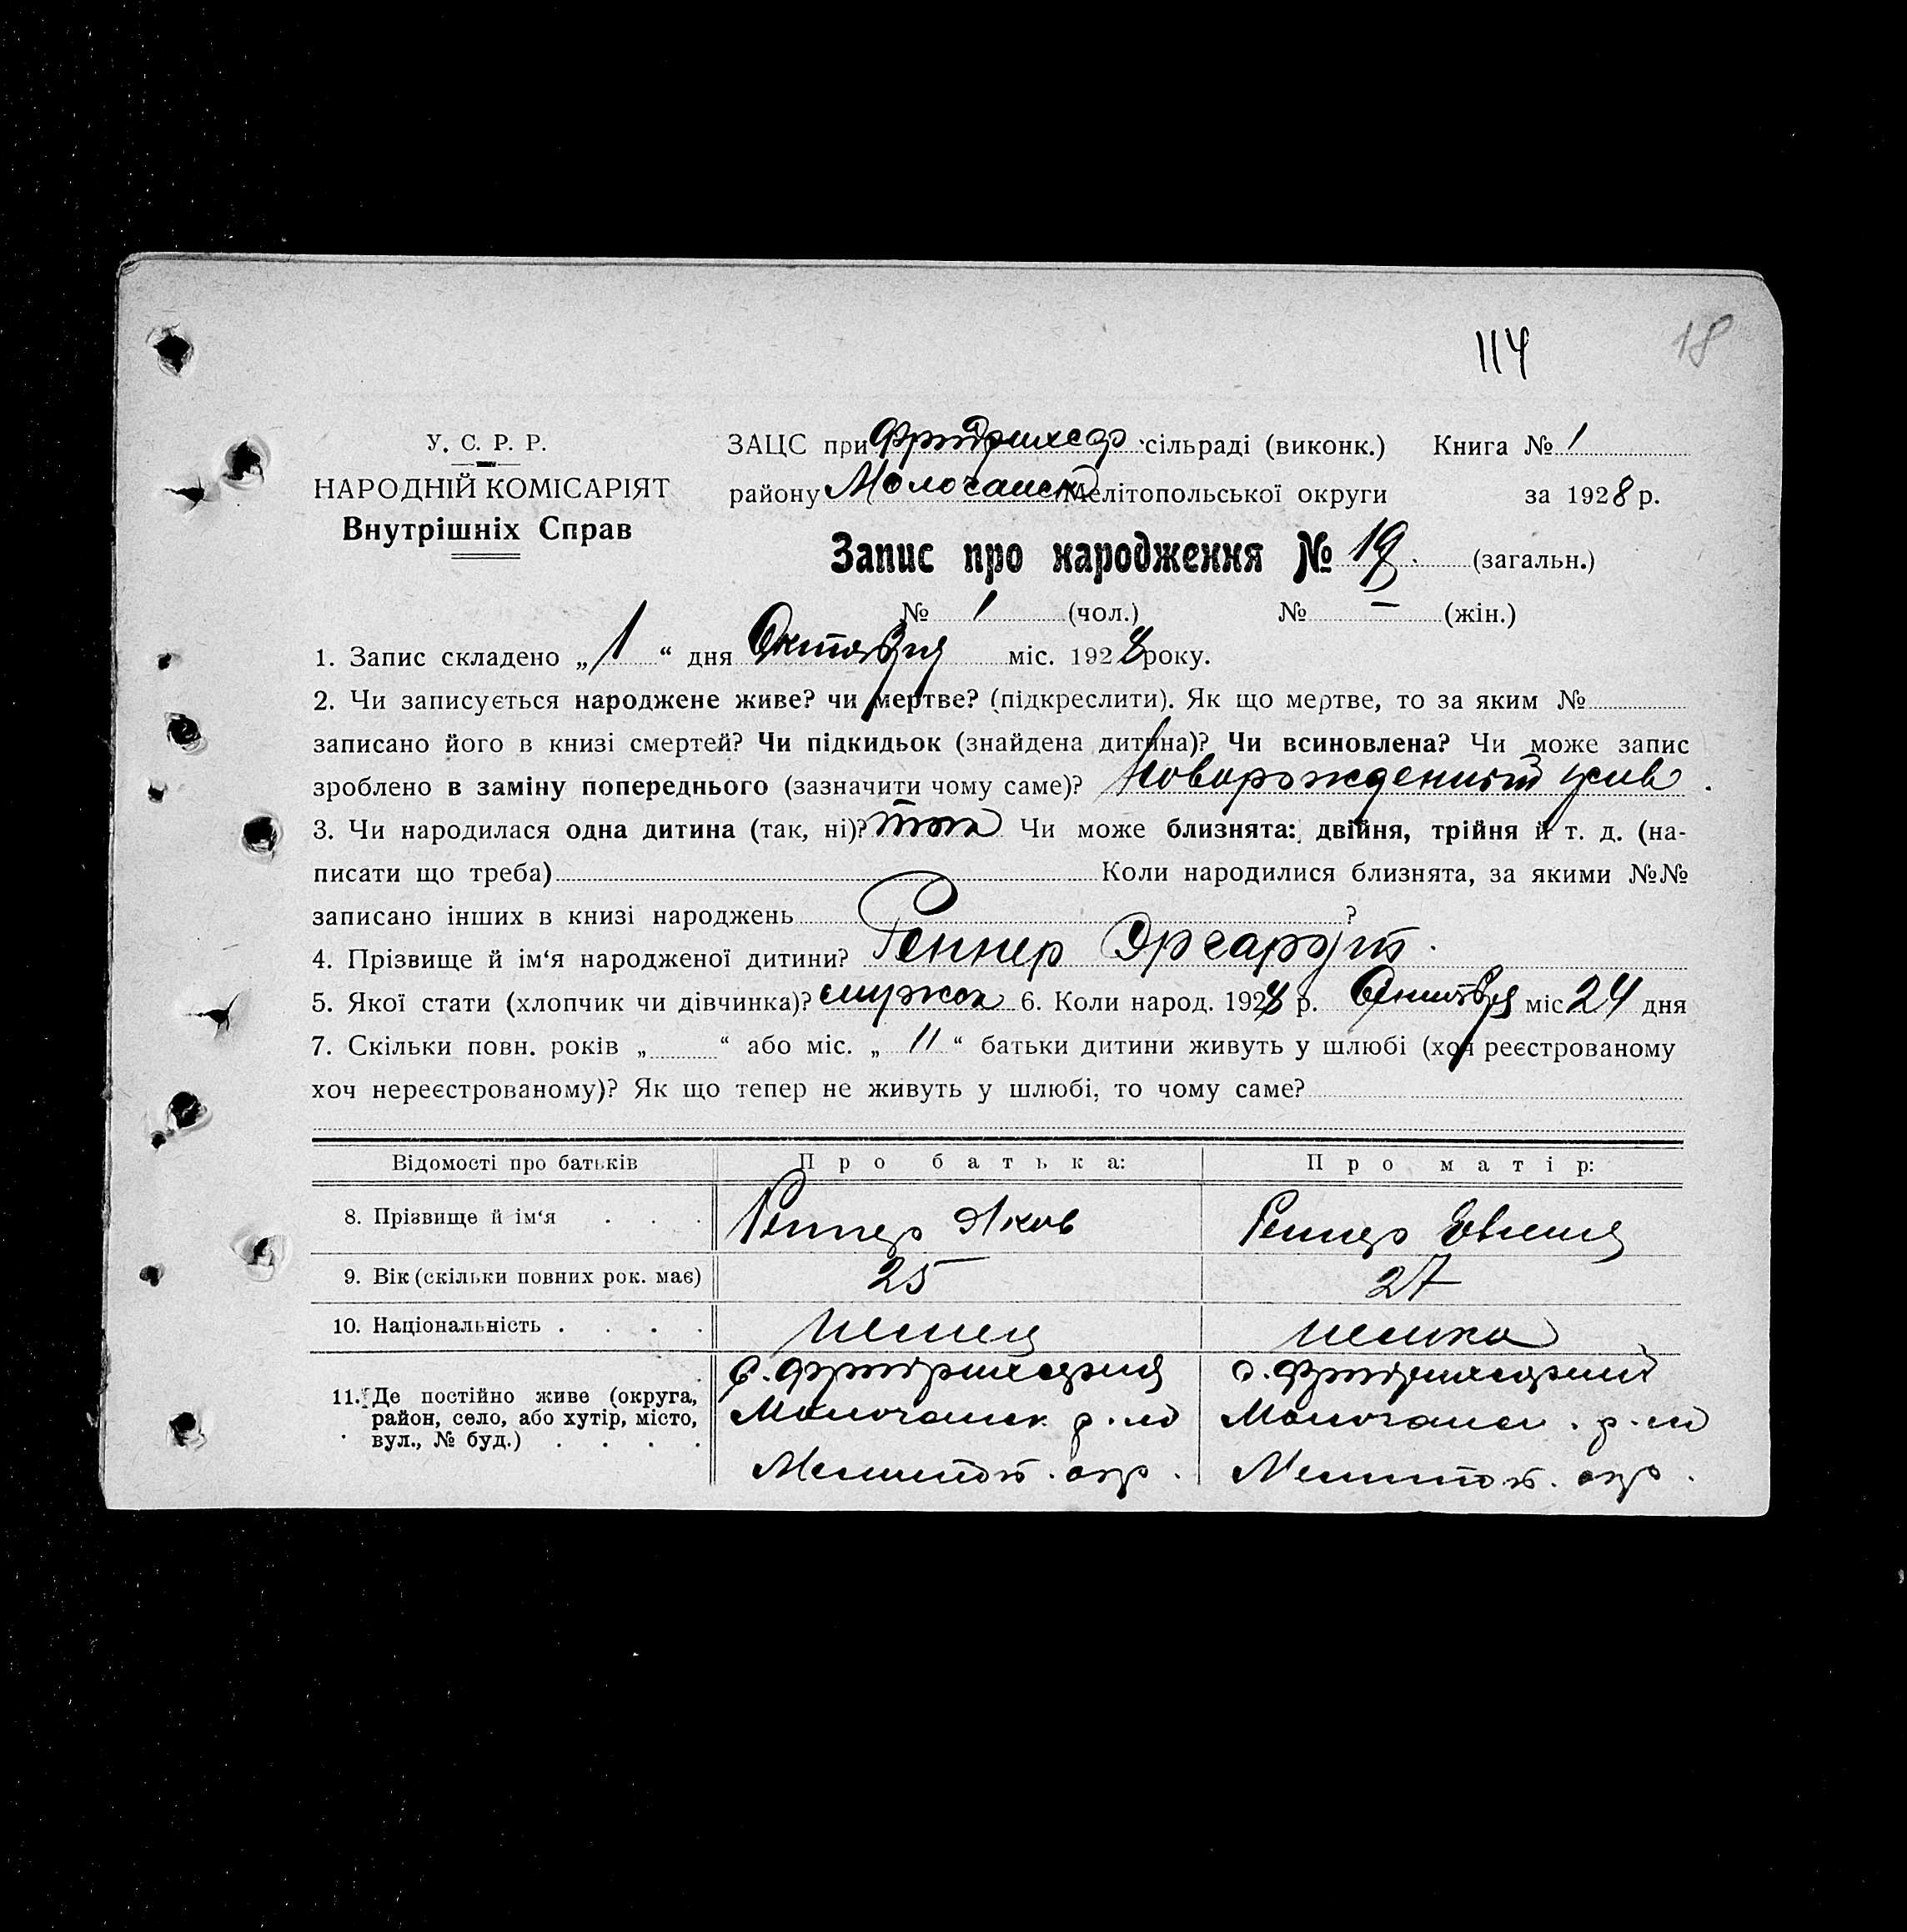 114 18
У. С. Р. Р.
НАРОДНІЙ КОМІСАРІЯТ
Внутрішніх Справ
ЗАЦС при Фридрихсф сільраді (виконк.) Книга № 1
району Молочанск Мелітопольської округи за 1928 р.
Запис про народження № 19. (загальн.)
№ 1 (чол.) № — (жін.)
1. Запис складено „1“ дня Октября міс. 1928 року.
2. Чи записується народжене живе? чи мертве? (підкреслити). Як що мертве, то за яким №
записано його в книзі смертей? Чи підкидьок (знайдена дитина)? Чи всиновлена? Чи може запис
зроблено в заміну попереднього (зазначити чому саме)? Новорожденный жив.
3. Чи народилася одна дитина (так, ні)? так Чи може близнята: двійня, трійня й т. д. (на-
писати що треба) Коли народилися близнята, за якими №№
записано інших в книзі народжень ?
4. Прізвище й ім‘я народженої дитини? Реннер
5. Якої стати (хлопчик чи дівчинка)? мужск 6. Коли народ. 1928 р. міс 24 дня
7. Скільки повн. років „ “ або міс. „ 11 “ батьки дитини живуть у шлюбі (хоч реєстрованому
хоч нереєстрованому)? Як що тепер не живуть у шлюбі, то чому саме?
Відомості про батьків Про батька: Про матір:
8. Прізвище й ім‘я . . . Реннер Яков Реннер
9. Вік (скільки повних рок. має) 25 27
10. Національність . . . . немец немка
11. Де постійно живе (округа,
район, село, або хутір, місто,
вул., № буд.) . . . .
Молочанск р. Молочанск. р.
Мелитоп. окр. Мелитоп. окр.